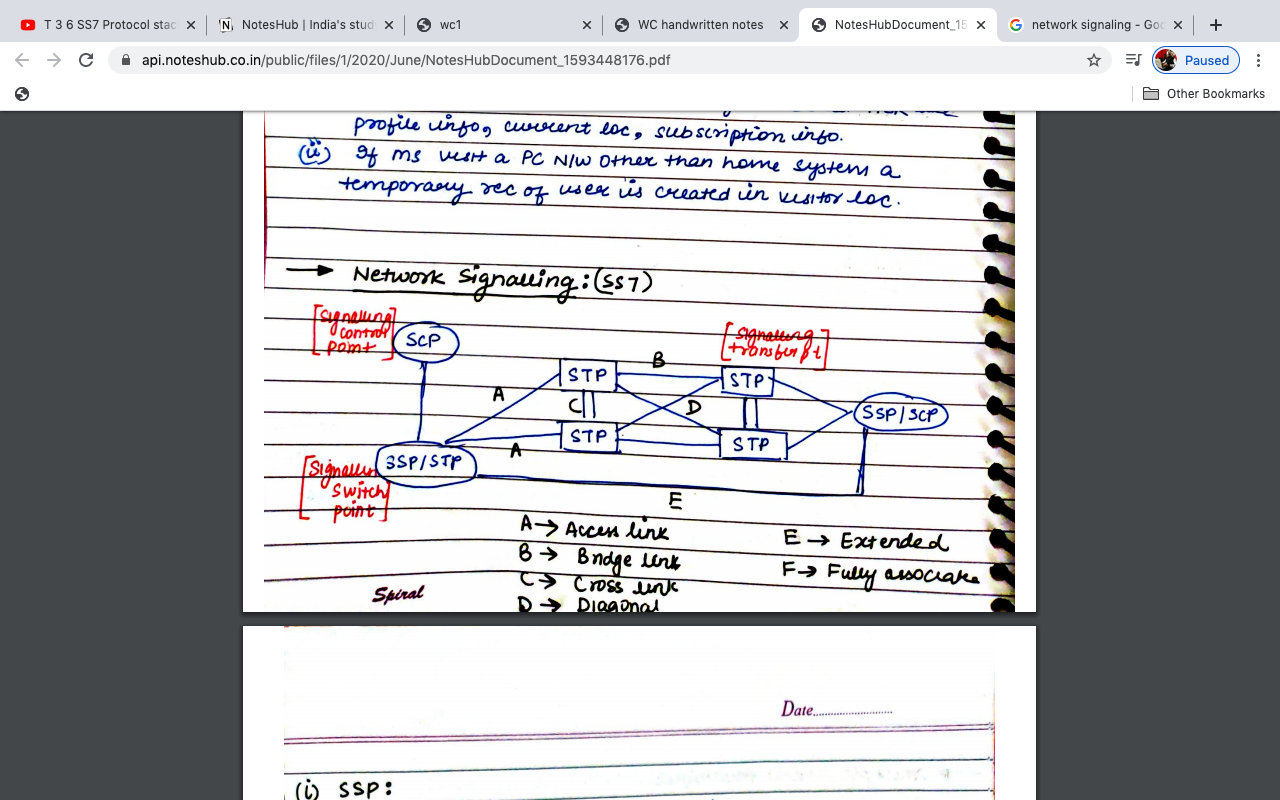 T 3 6 SS7 Protocol stac
NotesHub | India's stud
wc1
WC handwritten notes
NotesHubDocument_15
network signaling - Goo
api.noteshub.co.in/public/files/1/2020/June/NotesHubDocument_1593448176.pdf
Paused
Other Bookmarks
profile info, current loc, subscription info.
(ii) If ms visit a PC N/W other than home system a
temporary rec of user is created in visitor loc.
→ Network Signalling: (SS7)
[Signalling
control
point]
SCP
[Signalling
transfer pt]
STP
B
STP
A
C
D
SSP/SCP
STP
STP
A
SSP/STP
[Signallin
Switch
point]
E
A → Access link
B → Bridge link
C → Cross link
D → Diagonal
E → Extended
F → Fully associate
Spiral
Date
(i) SSP: